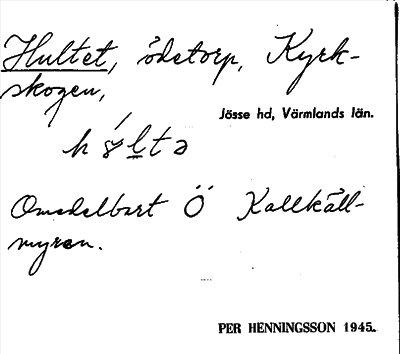 Hultet, ödetorp, Kyrk-
skogen,
Jösse hd, Värmlands län.
Omedelbart Ö Kallkäll-
myren.
PER HENNINGSSON 1945.